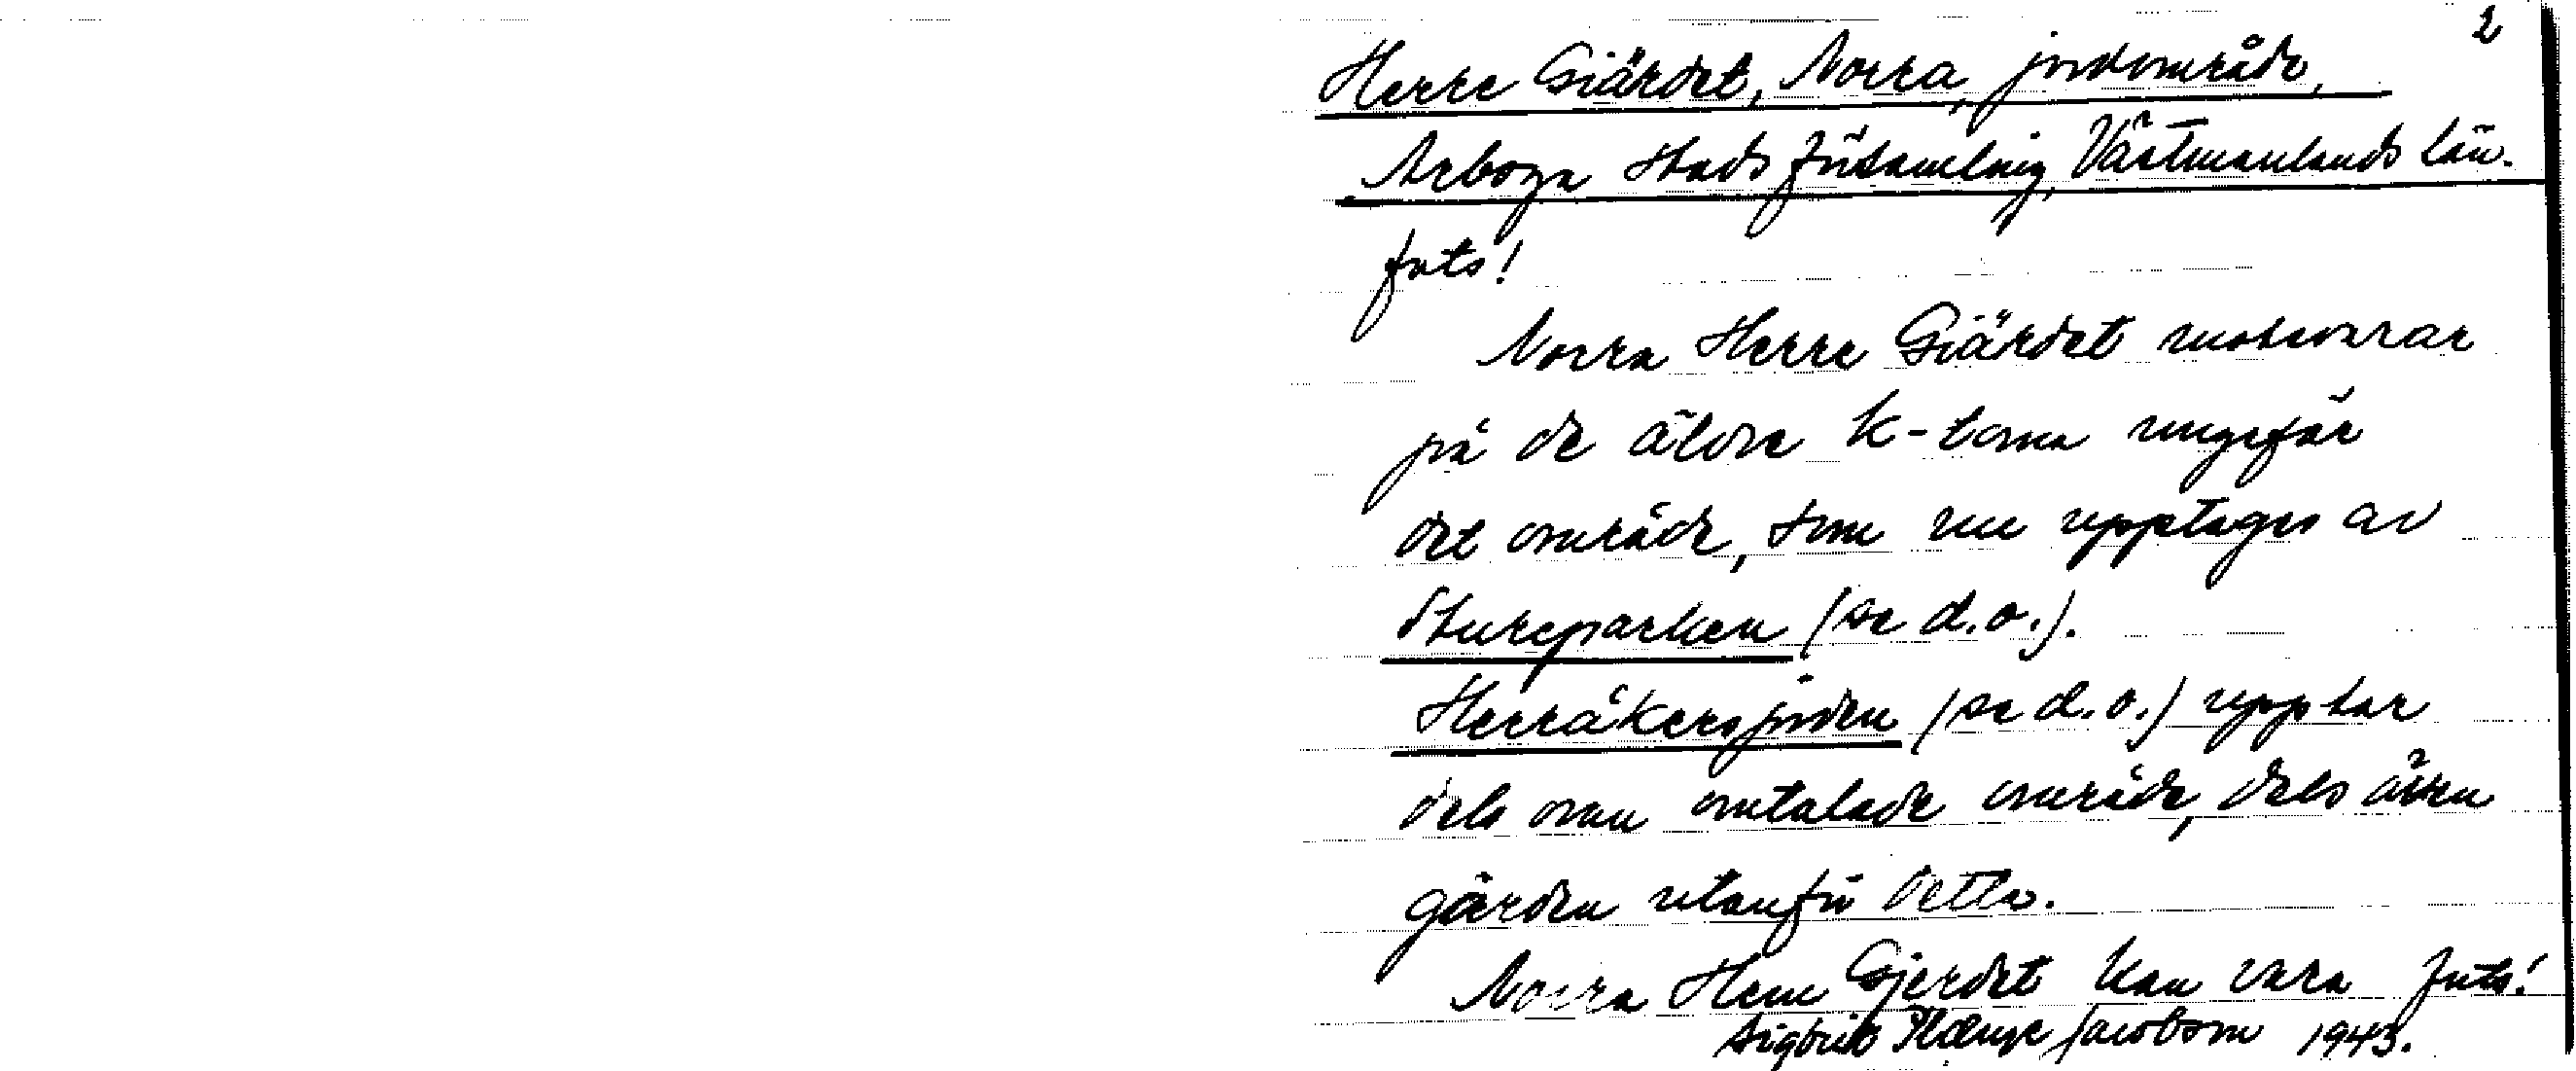 2
Herre Giärdet, Norra, jordområde,
Arboga stadsförsamling, Västmanlands län.
forts!
Norra Herre Giärdet motsvarar
på de äldre K-torna ungefär
det område, som nu upptages av
Stureparken (se d.o.).
Herråkersjorden (se d.o.) upptar
dels ovan omtalade område, dels även
gärden utanför detta.
Norra Herre Gjerdet kan vara forts!
Sigbrit Plænge Jacobson 1943.